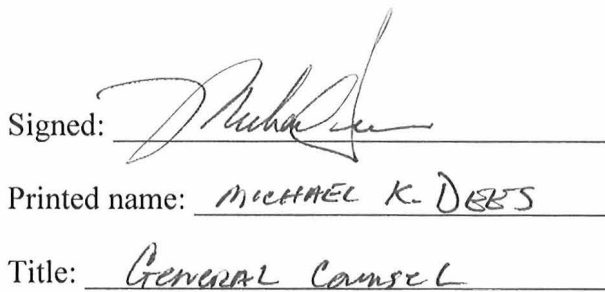 Signed: Michael
Printed name: MICHAEL K. DEES
Title: GENERAL COUNSEL